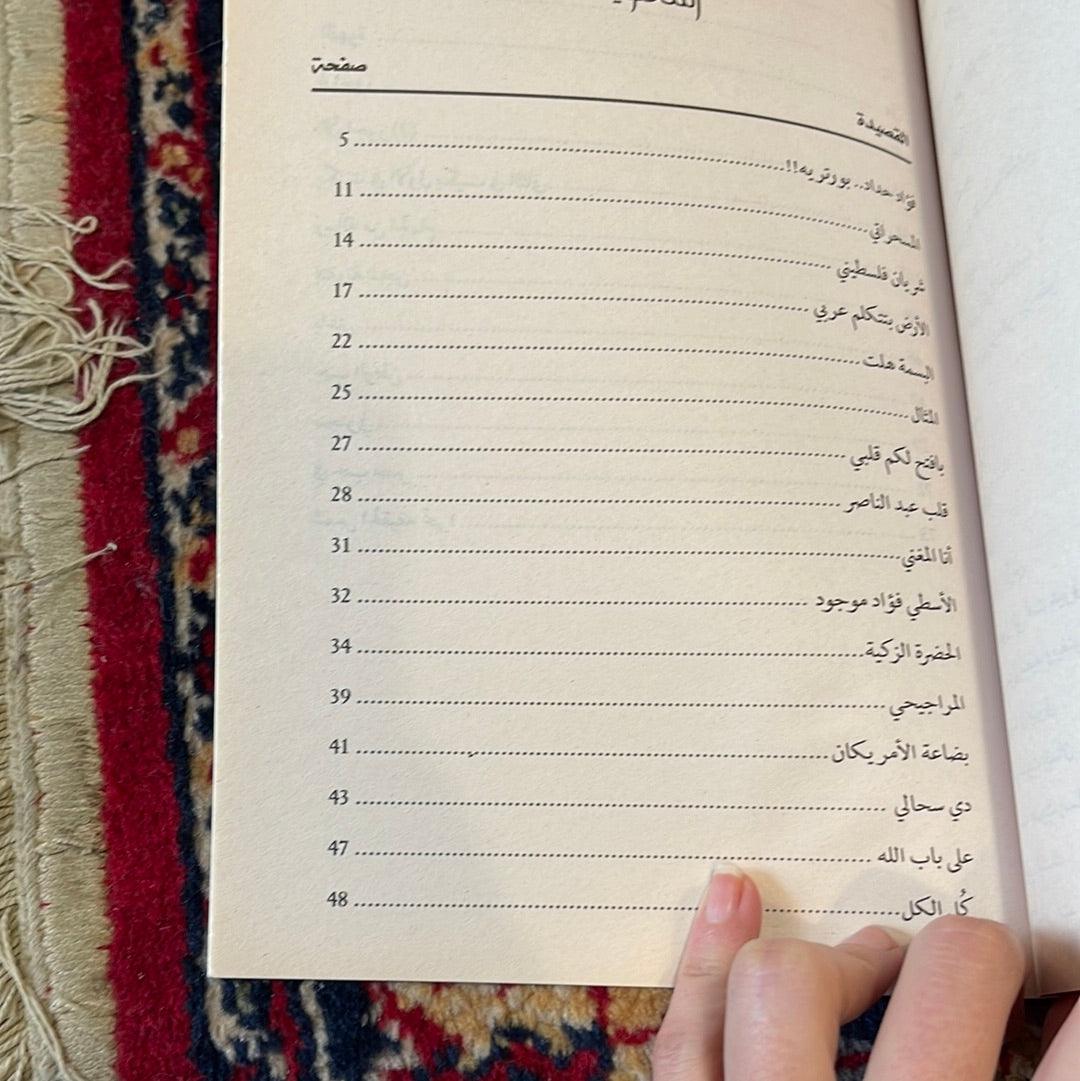 القصيدة صفحة
فؤاد حداد.. بورتريه!! 5
المسحراتي 11
شريان فلسطيني 14
الأرض بتتكلم عربي 17
البسمة هلت 22
المثال 25
بافتح لكم قلبي 27
قلب عبد الناصر 28
أنا المغني 31
الأسطي فؤاد موجود 32
الحضرة الزكية 34
المراجيحي 39
بضاعة الأمريكان 41
دي سحالي 43
على باب الله 47
كُل الكل 48